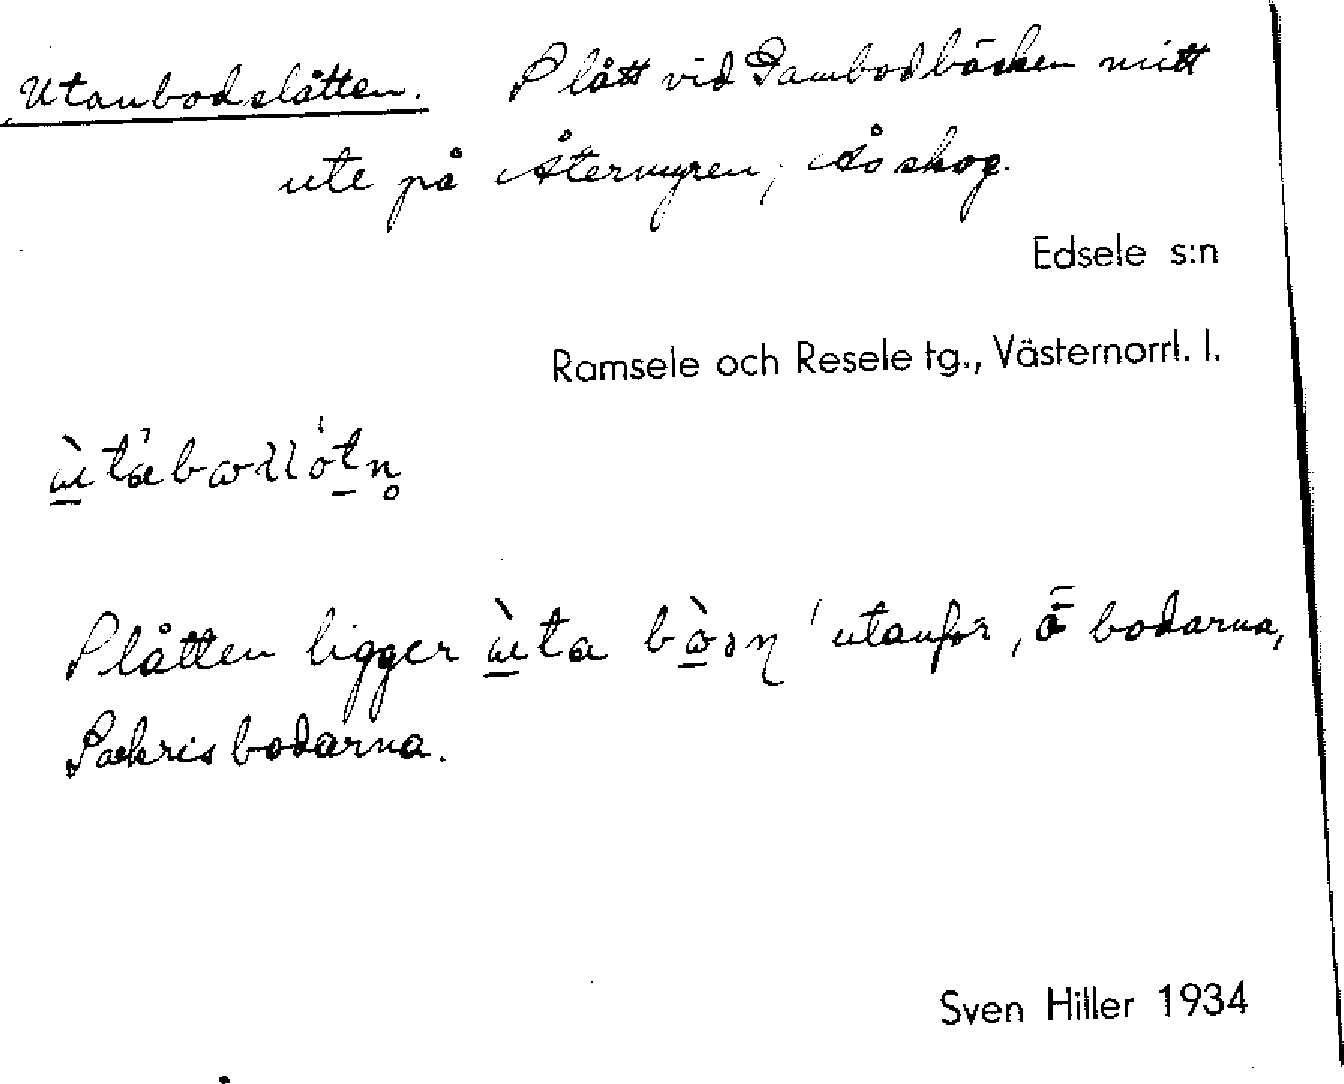 Utanbodslåtten. Slått vid Gambodbäcken mitt
ute på Återmyren, Ås skog.
Edsele s:n
Ramsele och Resele tg., Västernorrl. l.
Slåtten ligger ùta 'utanför, ō bodarna,
bodarna.
Sven Hiller 1934